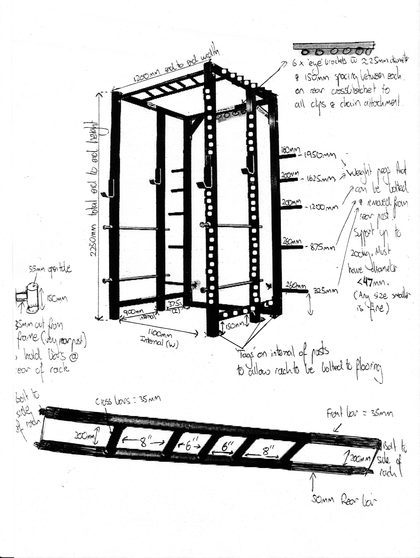 1200mm end to end width
6 x 'eye' brackets @ 225mm
@ 150mm spacing between each
on rear crossbracket to
all clips & chain attachment.
2250mm total end to end height
1950mm
200mm - 1625mm
200mm - 1200mm
260mm - 875mm
260mm 325mm
Weight pegs that
can be bolted
& removed from
rear post
support up to
200kg. Must
have diameter
<47mm.
(Any size smaller
is fine)
55mm
150mm
35mm out from
frame (very rear post)
, hold @
rear of rack
900mm
1100mm
Internal (W)
150mm
Tags on internal of posts
to allow rack to be bolted to flooring
bolt to
side
of rack
Cross bars = 35mm
200mm
8" 6" 6" 8"
Front bar = 35mm
bolt to
side of
rack
200mm
50mm Rear bar